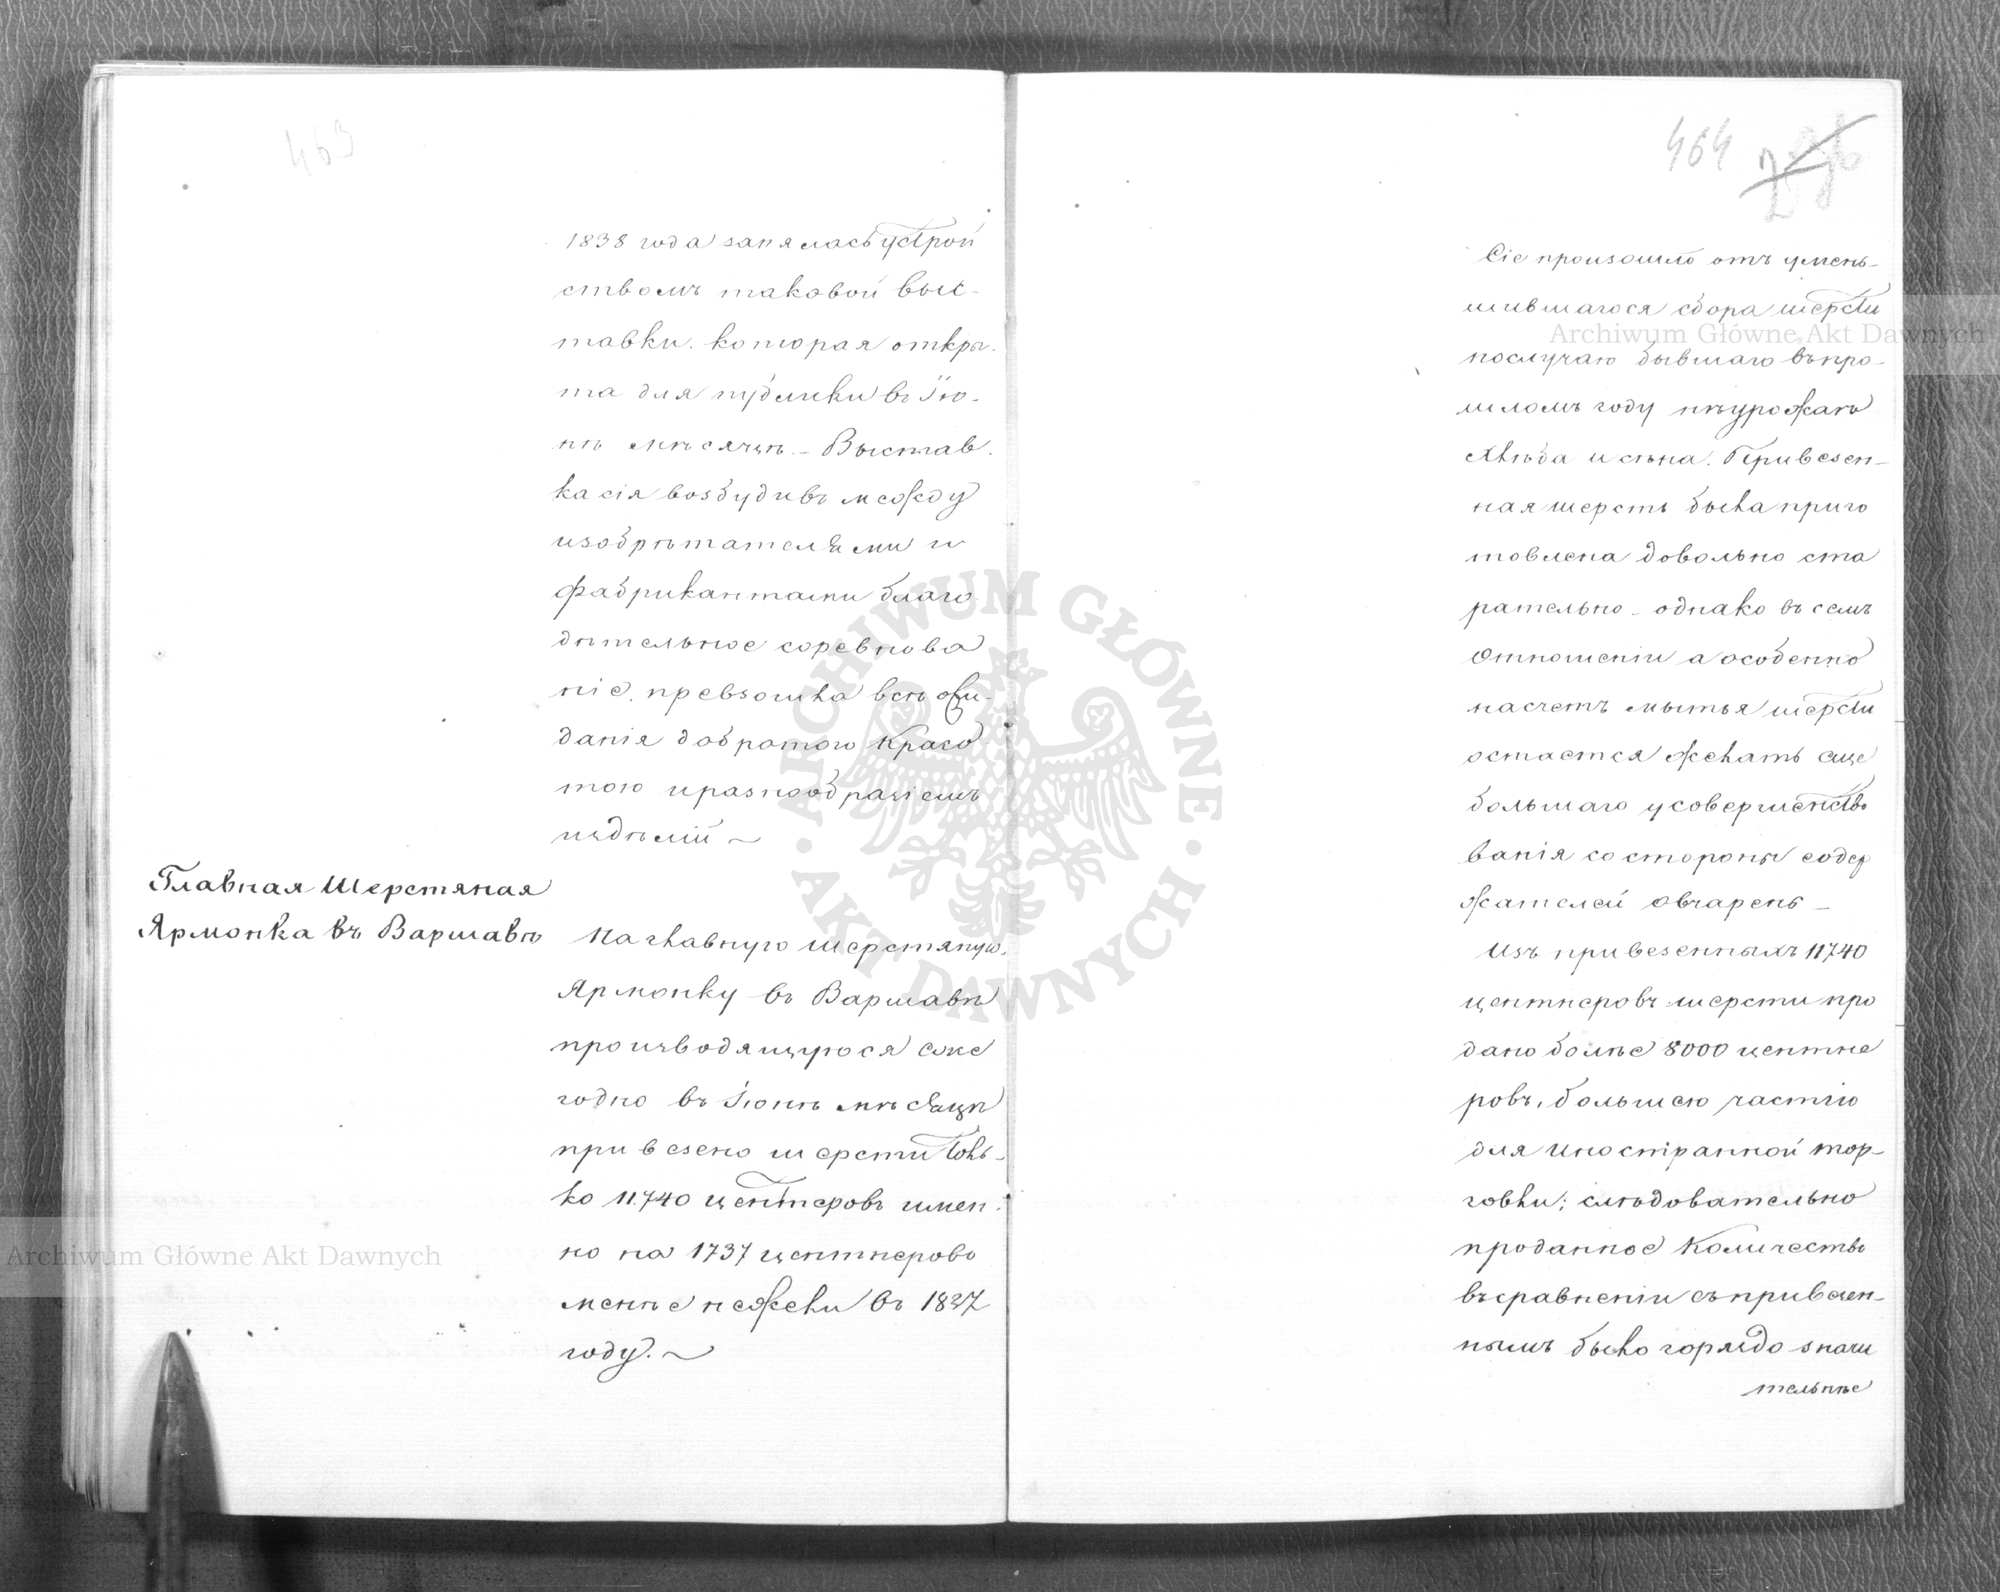 463
1838 года занялась устрой
ствомъ таковой выс-
тавки. которая откры.
та для публики въ Iю-
нѣ мѣсяцѣ. – Выстав.
ка сія возбудивъ между
изобрѣтателями и
фабрикантами благо
дѣтельное соревнова
ніе. превзошла всѣ ожи-
данія добротою красо
тою и разнообразіемъ
издѣлій ~
Главная Шерстяная
Ярмонка въ Варшавѣ
На главную шерстяную.
Ярмонку въ Варшавѣ
производящуюся еже
годно въ Iюнѣ мѣсяцѣ
привезено шерсти толь-
ко 11.740 центнеровъ имен.
но на 1737 центнеровъ
менѣе нежели въ 1837
году. ~
464
Сіе произошло отъ умень-
шившагося сбора шерсти
послучаю бывшаго въ про-
шломъ году неурожаю
хлѣба и сѣна. Привезен-
ная шерсть была приго
товлена довольно ста
рательно – однако въ семъ
отношеніи а особенно
насчетъ мытья шерсти
остается желать еще
большаго усовершенство
ванія со стороны содер
жателей овчарень –
Изъ привезенныхъ 11740
центнеровъ шерсти про
дано болѣе 8000 центне
ровъ, большею частію
для иностранной тор-
говли; слѣдовательно
проданное количество
въ сравненіи съ привезен-
нымъ было гораздо значи
тельнѣе
Archiwum Główne Akt Dawnych
Archiwum Główne Akt Dawnych
ARCHIWUM GŁÓWNE
AKT DAWNYCH